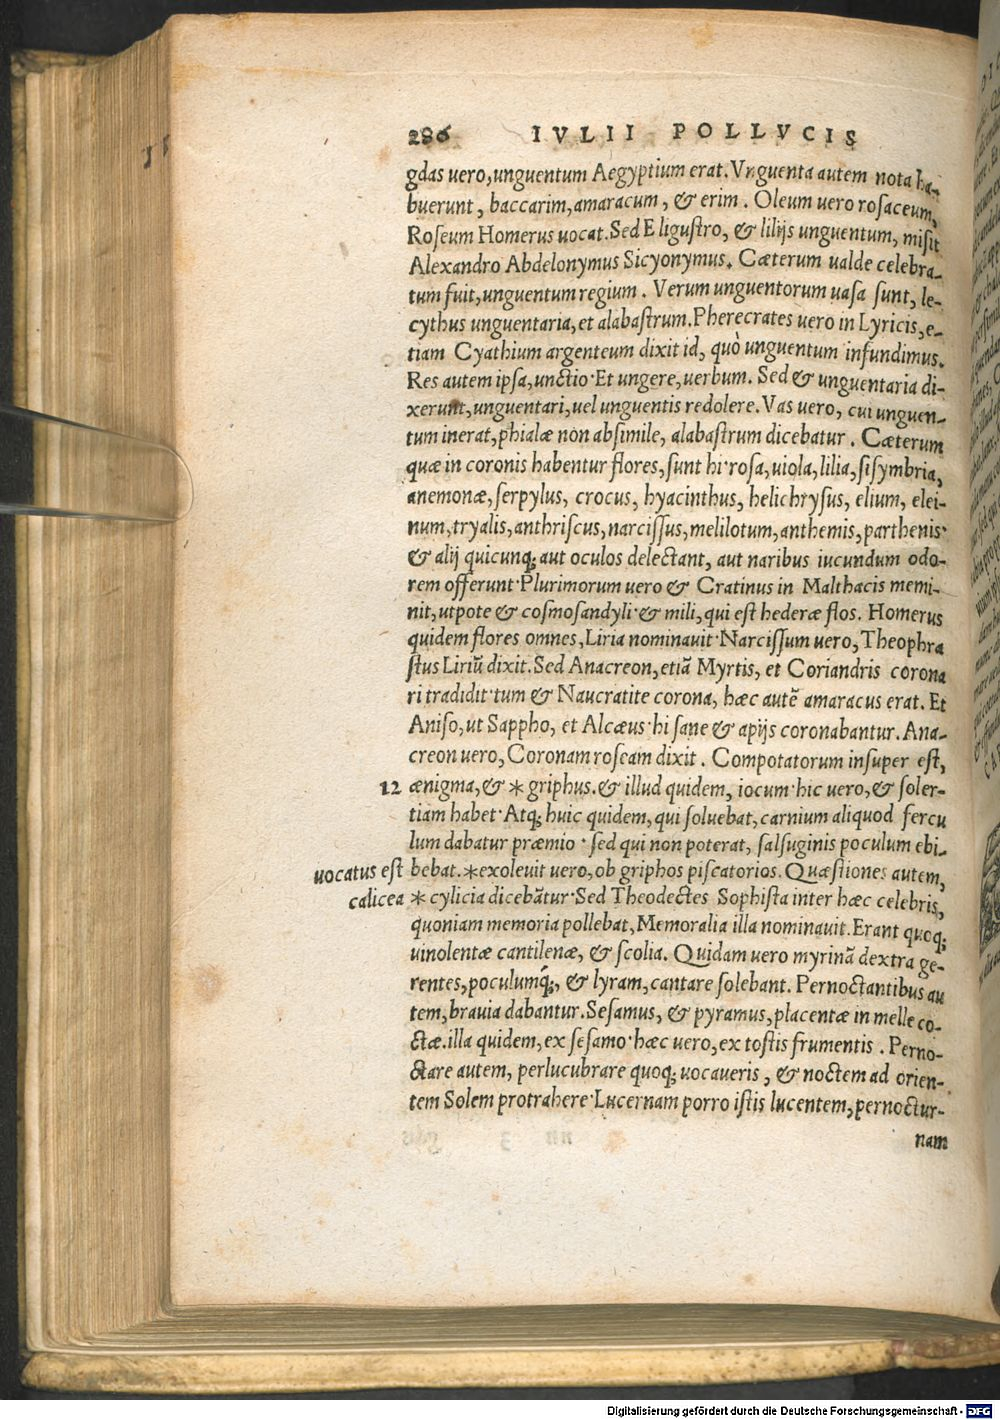 286 IVLII POLLVCIS
gdas uero, unguentum Aegyptium erat. Vnguenta autem nota ha-
buerunt, baccarim, amaracum, & erim. Oleum uero rosaceum,
Roseum Homerus uocat. Sed E ligustro, & lilijs unguentum, misit
Alexandro Abdelonymus Sicyonymus. Cæterum ualde celebra-
tum fuit, unguentum regium. Verum unguentorum uasa sunt, le-
cythus unguentaria, et alabastrum. Pherecrates uero in Lyricis, e-
tiam Cyathium argenteum dixit id, quò unguentum infundimus.
Res autem ipsa, unctio· Et ungere, uerbum. Sed & unguentaria di-
xerunt, unguentari, uel unguentis redolere. Vas uero, cui unguen-
tum inerat, phialæ non absimile, alabastrum dicebatur. Cæterum
quæ in coronis habentur flores, sunt hi· rosa, uiola, lilia, sisymbria,
anemonæ, serpylus, crocus, hyacinthus, helichrysus, elium, elei-
num, tryalis, anthriscus, narcissus, melilotum, anthemis, parthenis·
& alij quicunq; aut oculos delectant, aut naribus iucundum odo-
rem offerunt· Plurimorum uero & Cratinus in Malthacis memi-
nit, utpote & cosmosandyli· & mili, qui est hederæ flos. Homerus
quidem flores omnes, Liria nominauit· Narcissum uero, Theophra
stus Liriũ dixit. Sed Anacreon, etiã Myrtis, et Coriandris corona
ri tradidit· tum & Naucratite corona, hæc autẽ amaracus erat. Et
Aniso, ut Sappho, et Alcæus· hi sane & apijs coronabantur. Ana-
creon uero, Coronam roseam dixit. Compotatorum insuper est,
12 ænigma, & * griphus. & illud quidem, iocum· hic uero, & soler-
tiam habet· Atq; huic quidem, qui soluebat, carnium aliquod fercu
lum dabatur præmio· sed qui non poterat, salsuginis poculum ebi-
uocatus est bebat. *exoleuit uero, ob griphos piscatorios. Quæstiones autem,
calicea * cylicia dicebãtur· Sed Theodectes Sophista inter hæc celebris,
quoniam memoria pollebat, Memoralia illa nominauit. Erant quoq;
uinolentæ cantilenæ, & scolia. Quidam uero myrinã dextra ge-
rentes, poculumq́;, & lyram, cantare solebant. Pernoctantibus au
tem, brauia dabantur. Sesamus, & pyramus, placentæ in melle co-
ctæ. illa quidem, ex sesamo· hæc uero, ex tostis frumentis. Perno-
ctare autem, perlucubrare quoq; uocaueris, & noctem ad orien-
tem Solem protrahere· Lucernam porro istis lucentem, pernoctur-
nam
Digitalisierung gefördert durch die Deutsche Forschungsgemeinschaft - DFG